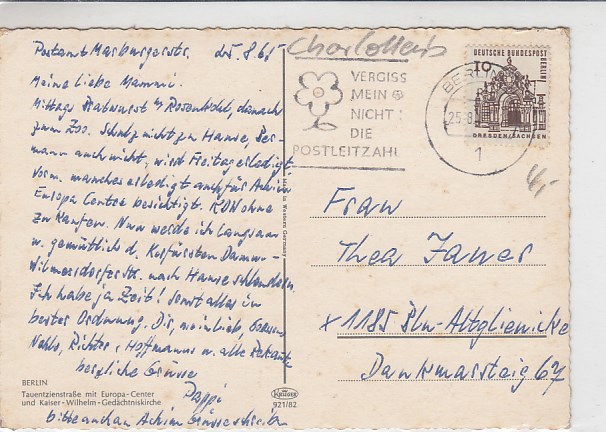 Postamt Marburgerstr. 25.8.65
Meine liebe Mammi.
Mittags Bratwurst, danach
zum Zoo. Schulz nicht zu Hause, Ber-
mann auch nicht, wird Freitag erledigt.
Vorm. manches erledigt auch für Achim
Europa Center besichtigt. KDW ohne
zu kaufen. Nun werde ich langsam
u. gemütlich d. Kurfürsten Damm -
Wilmersdorferstr. nach Hause schlendern.
Ich habe ja Zeit! Sonst alles in
bester Ordnung. Dir, mein Lieb,
Richter, Hoffmanns u. alle Bekannte
herzliche Grüsse
Pappi
bitte auch an Achim Grüsse schreiben
BERLIN
Tauentzienstraße mit Europa-Center
und Kaiser-Wilhelm-Gedächtniskirche
Krüger
921/82
Charlottenb
VERGISS
MEIN
NICHT:
DIE
POSTLEITZAHL
BERLIN
25.-8.
1
DEUTSCHE BUNDESPOST
BERLIN
10
DRESDEN/SACHSEN
Frau
Thea Janner
x 1185 Bln-Altglienicke
Dankmarsteig 67